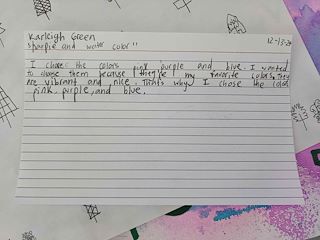 Karleigh Green 12-13-24
sharpie and water color"
I chose the colors pink purple and blue. I wanted
to chose them because they're my favorite colors. They
are vibrant and nice. That's why I chose the colors
pink, purple, and blue.